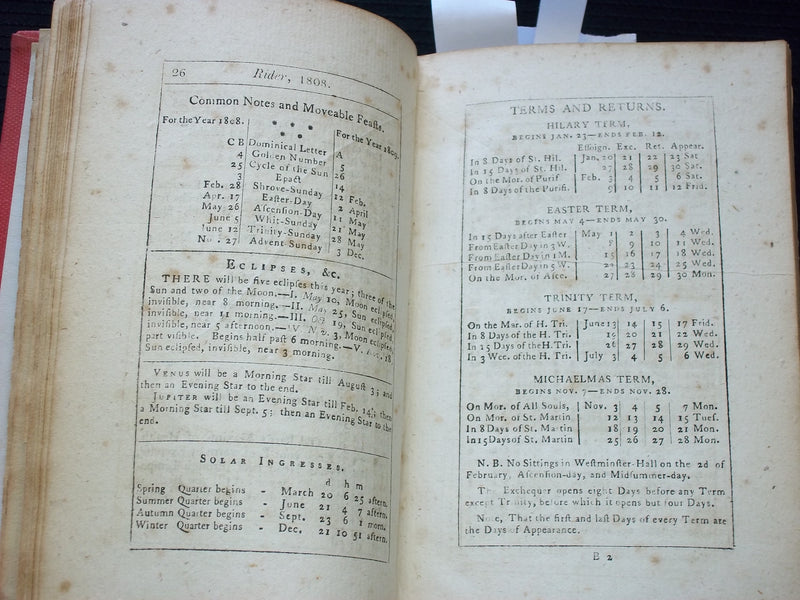 26 Rider, 1808.
Common Notes and Moveable Feaſts.
For the Year 1808. * * * For the Year 1809.
* *
C B Dominical Letter A
4 Golden Number 5
25 Cycle of the Sun 26
3 Epact 14
Feb. 28 Shrove-Sunday 12 Feb.
Apr. 17 Eaſter-Day 2 April
May 26 Aſcenſion-Day 11 May
June 5 Whit-Sunday 21 May
June 12 Trinity-Sunday 28 May
Nov. 27 Advent Sunday 3 Dec.
ECLIPSES, &c.
THERE will be five eclipſes this year; three of the
Sun and two of the Moon.—I. May 10, Moon eclipſed,
inviſible, near 8 morning.—II. May 25, Sun eclipſed,
inviſible, near 11 morning.—III. Oct 19, Sun eclipſed,
inviſible, near 5 afternoon.—IV. Nov. 3, Moon eclipſed,
part viſible. Begins half paſt 6 morning.—V. Nov. 18
Sun eclipſed, inviſible, near 3 morning.
VENUS will be a Morning Star till Auguſt 3; and
then an Evening Star to the end.
JUPITER will be an Evening Star till Feb. 14; then
a Morning Star till Sept. 5; then an Evening Star to the
end.
SOLAR INGRESSES.
d h m
Spring Quarter begins - March 20 6 25 aftern.
Summer Quarter begins - June 21 4 7 aftern.
Autumn Quarter begins - Sept. 23 6 1 morn.
Winter Quarter begins - Dec. 21 10 51 aftern.
TERMS AND RETURNS.
HILARY TERM,
BEGINS JAN. 23—ENDS FEB. 12.
Eſſoign. Exc. Ret. Appear.
In 8 Days of St. Hil. Jan. 20 21 22 23 Sat
In 15 Days of St. Hil. 27 28 29 30 Sat.
On the Mor. of Purif Feb. 3 4 5 6 Sat.
In 8 Days of the Purifi. 9 10 11 12 Frid.
EASTER TERM,
BEGINS MAY 4—ENDS MAY 30.
In 15 Days after Eaſter May 1 2 3 4 Wed.
From Eaſter Day in 3 W. 8 9 10 11 Wed.
From Eaſter Day in 1 M. 15 16 17 18 Wed.
From Eaſter Day in 5 W. 22 23 24 25 Wed.
On the Mor. of Aſce. 27 28 29 30 Mon.
TRINITY TERM,
BEGINS JUNE 17—ENDS JULY 6.
On the Mar. of H. Tri. June 13 14 15 17 Frid.
In 8 Days of the H. Tri. 19 20 21 22 Wed.
In 15 Days of the H. Tri. 26 27 28 29 Wed.
In 3 Wee. of the H. Tri. July 3 4 5 6 Wed.
MICHAELMAS TERM,
BEGINS NOV. 7—ENDS NOV. 28.
On Mor. of All Souls, Nov. 3 4 5 7 Mon.
On Mor. of St. Martin 12 13 14 15 Tueſ.
In 8 Days of St. Martin 18 19 20 21 Mon.
In 15 Days of St. Martin 25 26 27 28 Mon.
N. B. No Sittings in Weſtminſter-Hall on the 2d of
February, Aſcenſion-day, and Midſummer-day.
The Exchequer opens eight Days before any Term
except Trinity, before which it opens but four Days.
Note, That the firſt and laſt Days of every Term are
the Days of Appearance.
B 2